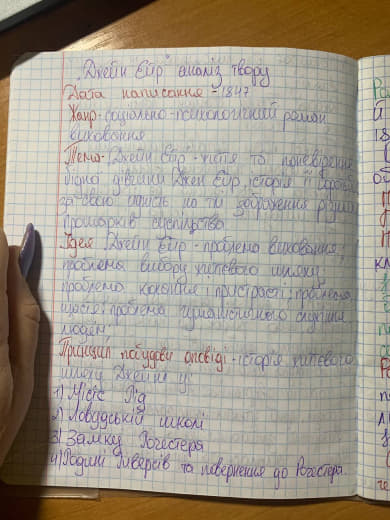 "Джейн Ейр" аналіз твору
Дата написання - 1847
Жанр - соціально-психологічний роман
виховання
Тема "Джейн Ейр" - життя та поневіряння
бідної дівчини Джен Ейр, історія її боротьби
за свою гідність на тлі зображення різних
прошарків суспільства
Ідея "Джейн Ейр" - проблема виховання;
проблема вибору життєвого шляху;
проблема кохання і пристрасті; проблема
щастя; проблема гуманістичного служіння
людям
Принцип побудови оповіді - історія життєвого
шляху Джейн у:
1) Місіс Рід
2) Ловудській школі
3) Замку Рочестера
4) Родині Ріверсів та повернення до Рочестера